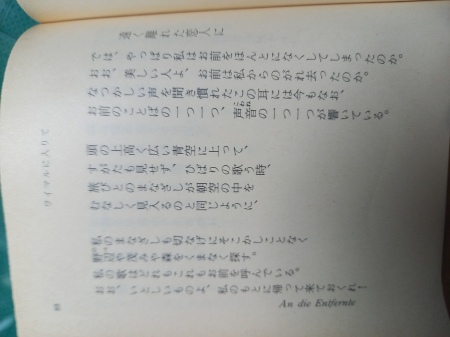 遠く離れた恋人に
では、やっぱり私はお前をほんとになくしてしまったのか。
おお、美しい人よ、お前は私からのがれ去ったのか。
なつかしい声を聞き慣れたこの耳には今もなお、
お前のことばの一つ一つ、声音の一つ一つが響いている。
頭の上高く広い青空に上って、
すがたも見せず、ひばりの歌う時、
旅びとのまなざしが朝空の中を
むなしく見入るのと同じように、
私のまなざしも切なげにそこかしことなく
野辺や茂みや森をくまなく探す。
私の歌はどれもこれもお前を呼んでいる。
おお、いとしいものよ、私のもとに帰って来ておくれ!
An die Entfernte
ワイマルに入りて